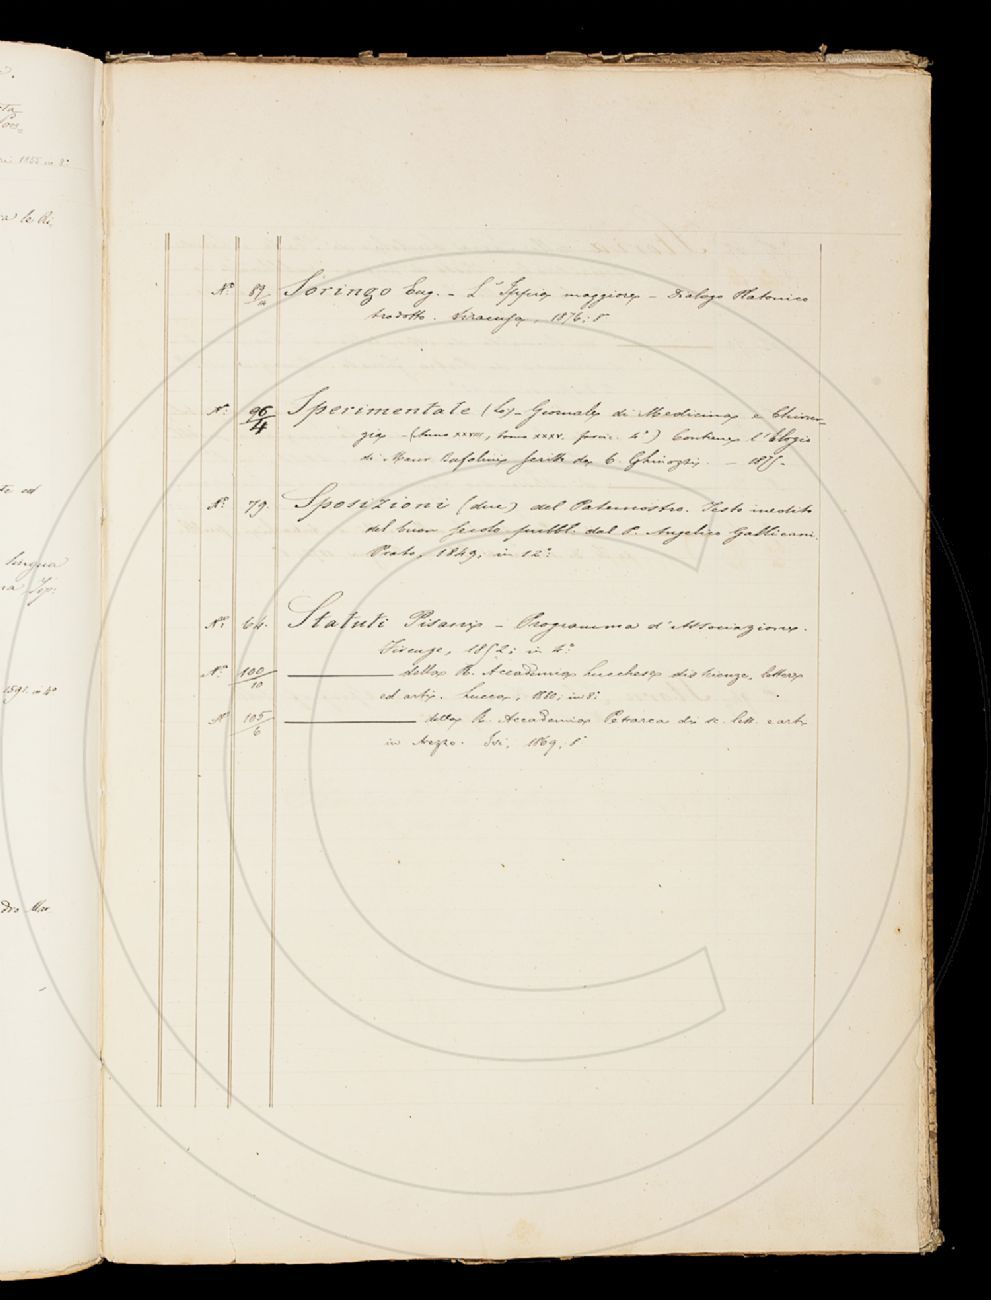 N.° 89/11 Soringo Eug. – L'Ippia maggiore – Dialogo Platonico
tradotto. Siracusa, 1876; 8°
N.° 96/4 Sperimentale (Lo) – Giornale di Medicina e Chirur-
gia – (Anno XXVIII, tomo XXXV. fasc. 4°) Contiene l'Elogio
di Maur. Bufalini scritto da C. Ghinozzi. – 1875 –
N.° 79. Sposizioni (due) del Paternostro. Testo inedito
del buon secolo pubbl. dal P. Angelico Gallicani.
Prato, 1849; in 12°.
N.° 64. Statuti Pisani – Programma d'Associazione.
Firenze, 1852; in 4°
N.° 100/10 della R. Accademia Lucchese di scienze, lettere
ed arti. Lucca, 1880; in 8°.
N.° 105/6 della R. Accademia Petrarca di sc. lett. e arti
in Arezzo. Ivi, 1869; 8°
lingua
1591. in 4°